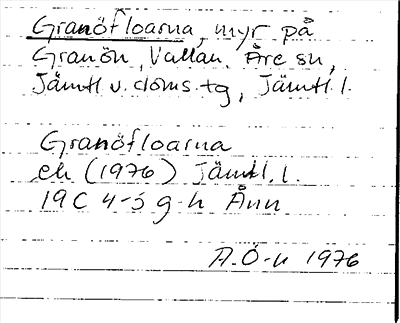 Granöfloarna, myr på
Granön, Vallan. Åre sn,
Jämtl v. doms. tg, Jämtl. l.
Granöfloarna
ek (1976) Jämtl. l.
19C 4-5 g-h Ånn
A.Ö-n 1976